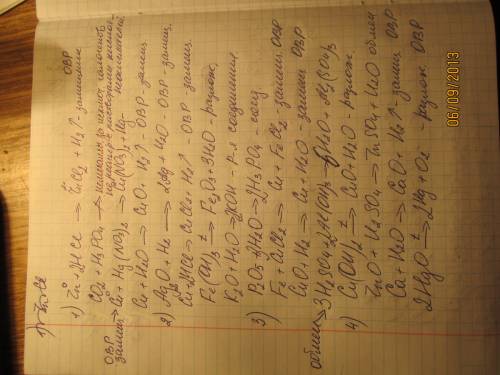 1) Zn + 2HCl → ZnCl₂ + H₂↑ - замещения ОВР
CO₂ + H₃PO₄ ↛
ОВР замещ → Cu + Hg(NO₃)₂ → Cu(NO₃)₂ + Hg -
Cu + H₂O → CuO + H₂↑ - ОВР - замещ
2) Ag₂O + H₂ → 2Ag + H₂O - ОВР - замещ.
Cu + 2HCl → CuCl₂ + H₂↑ - ОВР замещ
Fe(OH)₃ →ᵗ Fe₂O₃ + 3H₂O - разлож.
K₂O + H₂O → 2KOH - р-я соединения
3) P₂O₅ + 3H₂O → 2H₃PO₄ - соед.
Fe + CuCl₂ → Cu + FeCl₂ - замещ ОВР
CuO + H₂ → Cu + H₂O - замещ ОВР
обмен → 3H₂SO₄ + 2Al(OH)₃ → 6H₂O + Al₂(SO₄)₃
4) Cu(OH)₂ →ᵗ CuO + H₂O - разлож.
ZnO + H₂SO₄ → ZnSO₄ + H₂O обмен
Ca + H₂O → CaO + H₂↑ - замещ ОВР
2HgO →ᵗ 2Hg + O₂ - разлож ОВР
06/09/2013